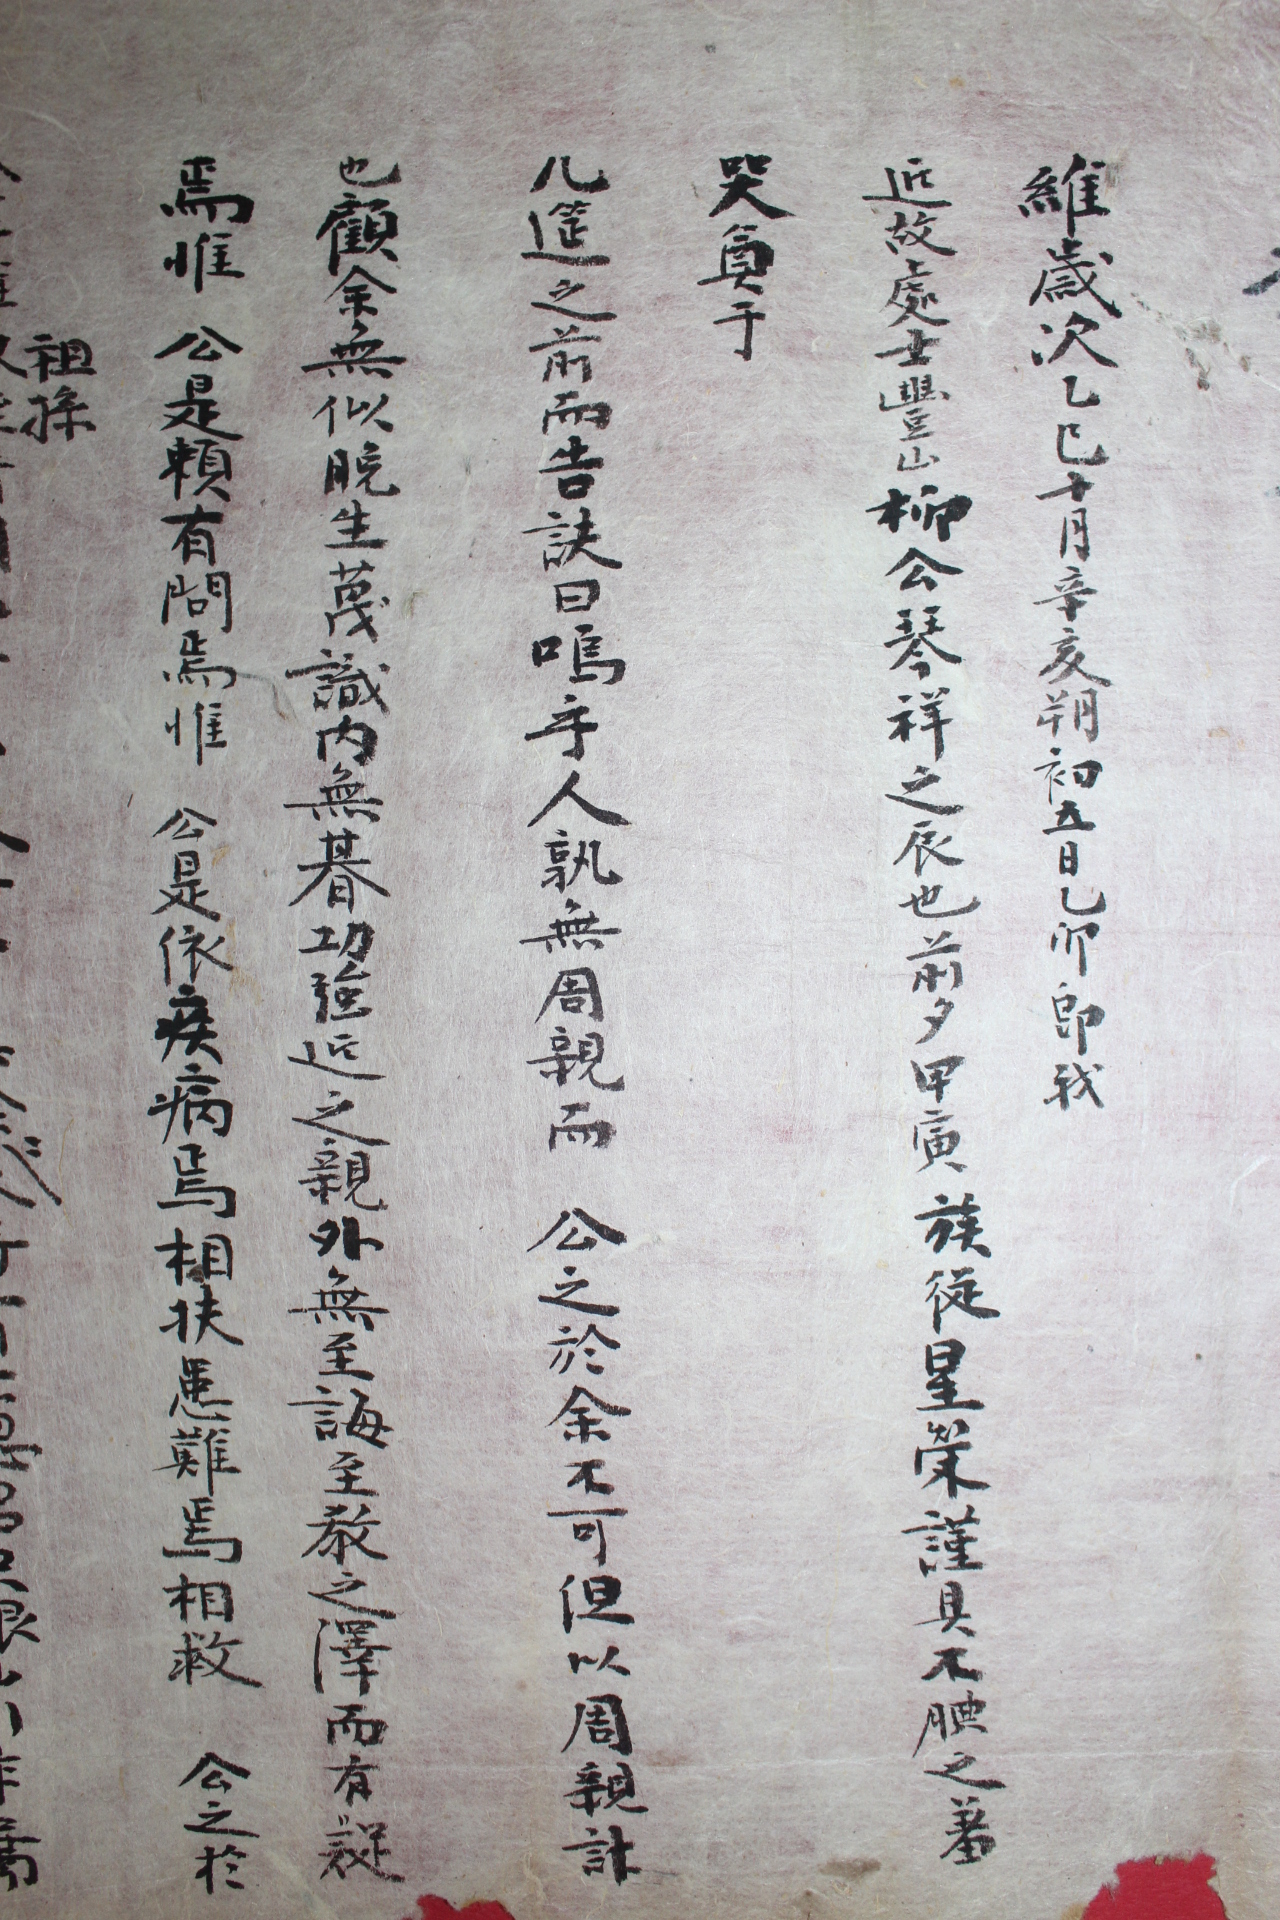 維歲次乙巳十月辛亥朔初五日乙卯卽我
近故處士豐山柳公琴祥之辰也前夕甲寅族從星榮謹具不腆之羞
哭奠于
几筵之前而告訣曰嗚乎人孰無周親而 公之於余不可但以周親計
也顧余無似晩生蔑識內無朞功强近之親外無至誨至敎之澤而有疑
焉惟 公是賴有問焉惟 公是依疾病焉相扶患難焉相救 公之於
祖孫